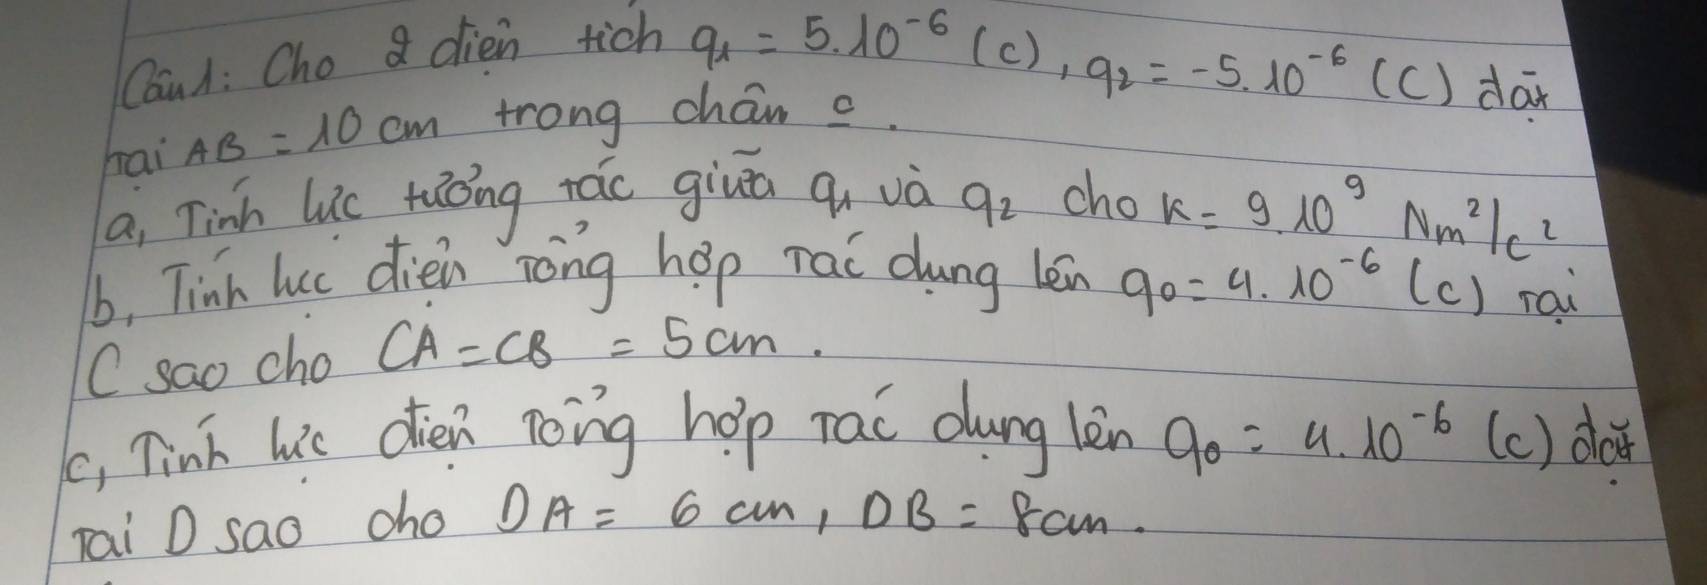 Câu1: Cho 2 điện tích q₁ = 5.10⁻⁶ (C), q₂ = -5.10⁻⁶ (C) đặt
tại AB = 10 cm trong chân o.
a, Tính lực tương tác giữa q₁ và q₂ cho k = 9.10⁹ Nm²/c²
b, Tính lực điện tổng hợp tác dụng lên q₀ = 4.10⁻⁶ (c) tại
C sao cho CA = CB = 5 cm.
c, Tính lực điện tổng hợp tác dụng lên q₀ = 4.10⁻⁶ (c) đặt
tại D sao cho DA = 6 cm, DB = 8 cm.